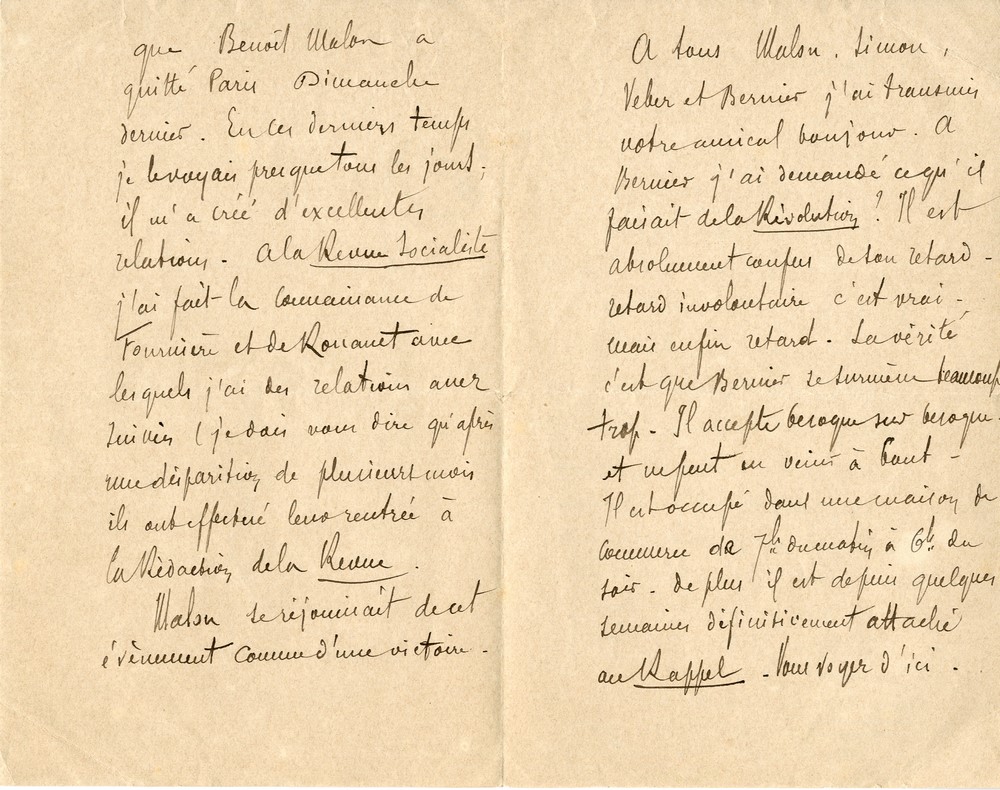 que Benoît Malon a
quitté Paris Dimanche
dernier. En ces derniers temps
je le voyais presque tous les jours;
il m'a créé d'excellentes
relations. A la Revue Socialiste
j'ai fait la connaissance de
Fournière et de Rouanet avec
lesquels j'ai des relations assez
suivies (je dois vous dire qu'après
une disparition de plusieurs mois
ils ont effectué leur rentrée à
la Rédaction de la Revue.
Malon se réjouissait de cet
évènement comme d'une victoire.
A tous Malon, Simon,
Veber et Bernier j'ai transmis
votre amical bonjour. A
Bernier j'ai demandé ce qu'il
faisait de la Révolution? Il est
absolument confus de son retard -
retard involontaire c'est vrai -
mais enfin retard. La vérité
c'est que Bernier se surmène beaucoup
trop - Il accepte besogne sur besogne
et ne peut en venir à bout -
Il est occupé dans une maison de
commerce de 7h du matin à 6h du
soir - de plus il est depuis quelques
semaines définitivement attaché
au Rappel - Vous voyez d'ici.